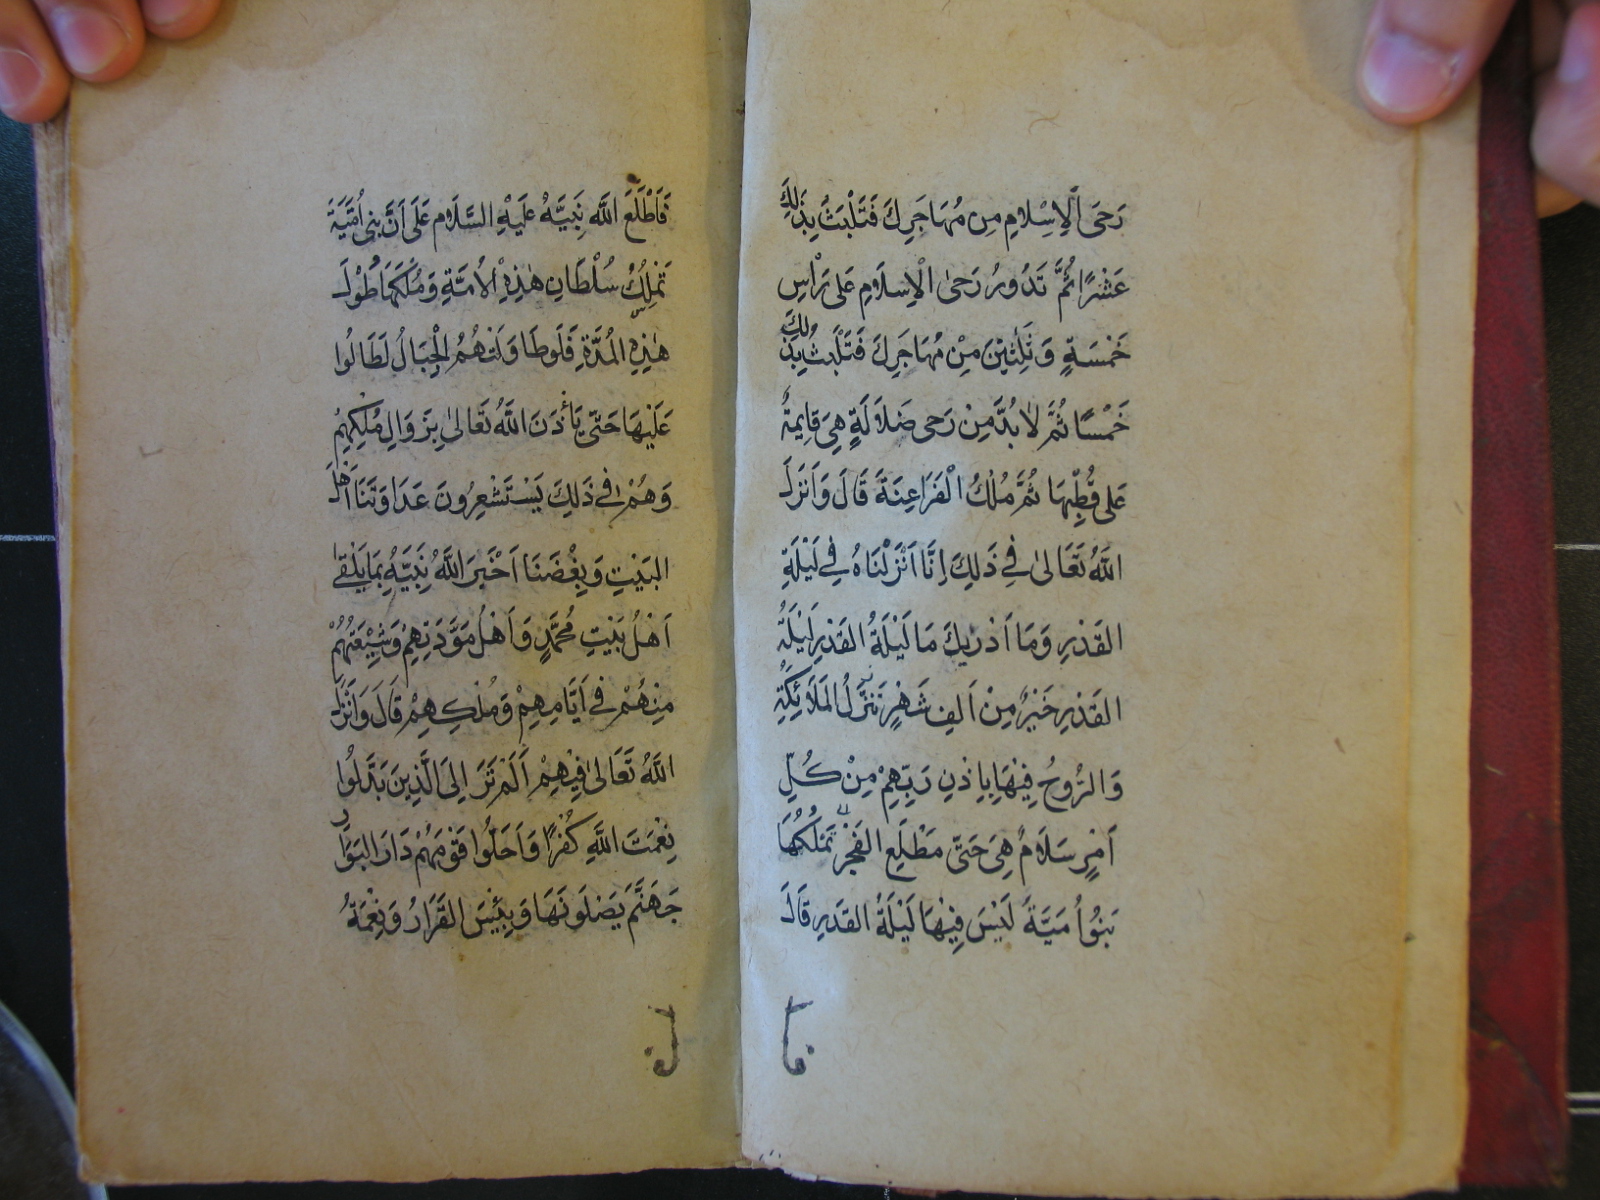 رَحَى الْاِسْلَامِ مِن مُهَاجَرِكَ فَتَلْبَثُ بِذٰلِكَ
عَشْرًا ثُمَّ تَدُورُ رَحَى الْاِسْلَامِ عَلٰى رَأْسِ
خَمْسَةٍ وَثَلٰثِيْنَ مِنْ مُهَاجَرِكَ فَتَلْبَثُ بِذٰلِكَ
خَمْسًا ثُمَّ لَا بُدَّ مِنْ رَحَى ضَلَالَةٍ هِيَ قَايِمَةٌ
عَلٰى قُطْبِهَا ثُمَّ مُلْكُ الْفَرَاعِنَةَ قَالَ وَاَنْزَلَ
اللّٰهُ تَعَالٰى فِي ذٰلِكَ اِنَّا اَنْزَلْنَاهُ فِي لَيْلَةِ
القَدْرِ وَمَا اَدْرٰيكَ مَا لَيْلَةُ القَدْرِ لَيْلَةُ
القَدْرِ خَيْرٌ مِنْ اَلْفِ شَهْرٍ تَنَزَّلُ المَلَائِكَةُ
وَالرُّوحُ فِيْهَا بِاِذْنِ رَبِّهِمْ مِنْ كُلِّ
اَمْرٍ سَلَامٌ هِيَ حَتّٰى مَطْلَعِ الفَجْرِ تَمْلِكُهَا
بَنُوا اُمَيَّةَ لَيْسَ فِيْهَا لَيْلَةُ القَدْرِ قَالَ
فَاَطْلَعَ اللّٰهُ نَبِيَّهُ عَلَيْهِ السَّلَام عَلٰى اَنَّ بَنِي اُمَيَّةَ
تَمْلِكُ سُلْطَانَ هٰذِهْ الْاُمَّةِ وَمُلْكَهَا طُوْلَ
هٰذِهِ المُدَّةِ فَلَو طَاوَلَتْهُمُ الْجِبَالُ لَطَالُوا
عَلَيْهَا حَتّٰى يَأْذَنَ اللّٰهُ تَعَالٰى بِزَوَالِ مُلْكِهِمْ
وَهُمْ فِي ذٰلِكَ يَسْتَشْعِرُونَ عَدَاوَتَنَا اَهْلَ
البَيْتِ وَبِغْضَنَا اَخْبَرَ اللّٰهُ نَبِيَّهُ بِمَا يَلْقٰى
اَهْلُ بَيْتِ مُحَمَّدٍ وَاَهْلُ مَوَدَّتِهِمْ وَشِيْعَتُهُمْ
مِنْهُمْ فِي اَيَّامِهِمْ وَمُلْكِهِمْ قَالَ وَاَنْزَلَ
اللّٰهُ تَعَالٰى فِيْهِمْ اَلَمْ تَرَ اِلَى الَّذِينَ بَدَّلُوا
نِعْمَتَ اللّٰهِ كُفْرًا وَاَحَلُّوا قَوْمَهُمْ دَارَ البَوَارِ
جَهَنَّمَ يَصْلَونَهَا وَبِئْسَ القَرَارُ وَنِعْمَةُ